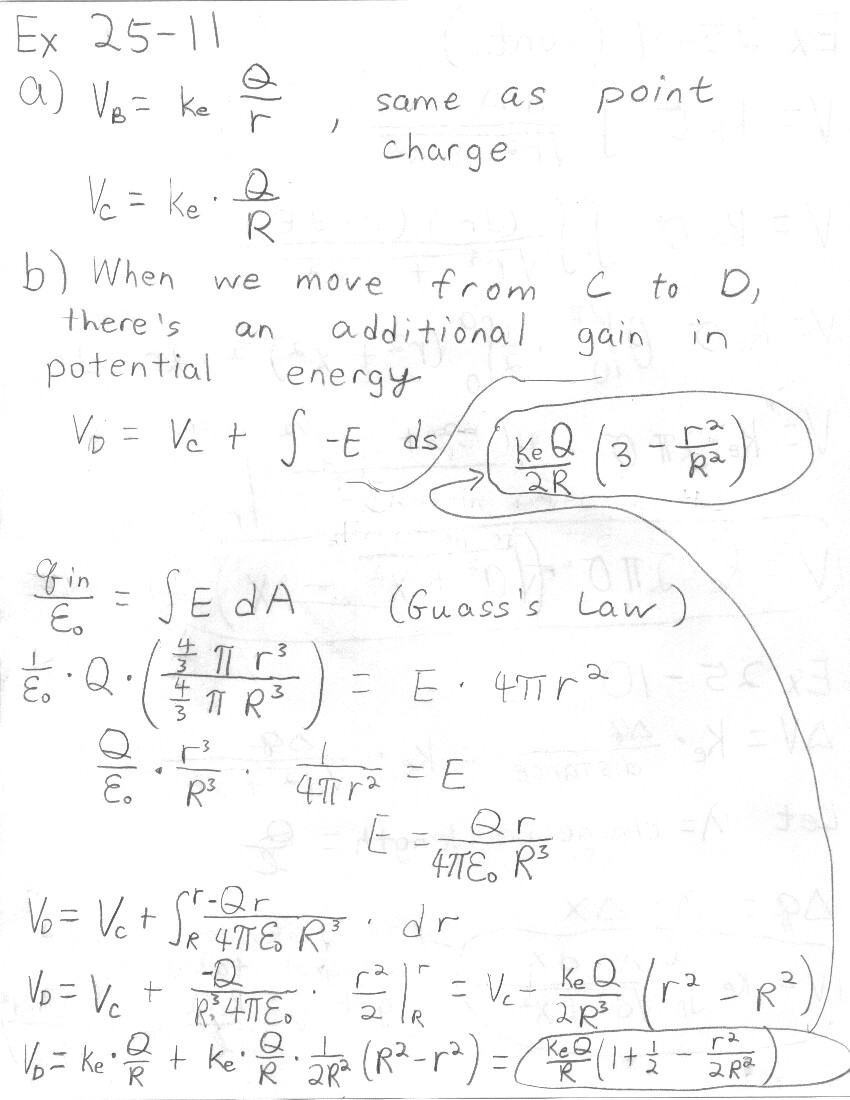 Ex 25-11
a) V_B = ke Q/r , same as point charge
V_C = ke · Q/R
b) When we move from C to D,
there's an additional gain in
potential energy
V_D = V_C + ∫ -E ds keQ/2R (3 - r²/R²)
q_in/ε₀ = ∫ E dA (Guass's Law)
1/ε₀ · Q · (4/3 π r³ / 4/3 π R³) = E · 4πr²
Q/ε₀ · r³/R³ · 1/4πr² = E
E = Qr/4πε₀ R³
V_D = V_C + ∫_R^r -Qr/4πε₀ R³ · dr
V_D = V_C + -Q/R³4πε₀ · r²/2 |_R^r = V_C - keQ/2R³ (r² - R²)
V_D = ke · Q/R + ke · Q/R · 1/2R² (R² - r²) = keQ/R (1 + 1/2 - r²/2R²)